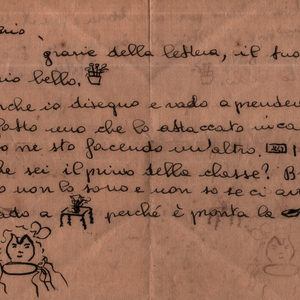 grazie della lettera, il tuo
bello.
che io disegno e vado a prendere
fatto uno che lo attaccato in ca
ne sto facendo un'altro.
che sei il primo della classe? B
non lo sono e non so se ci
ado a perché è pronta la